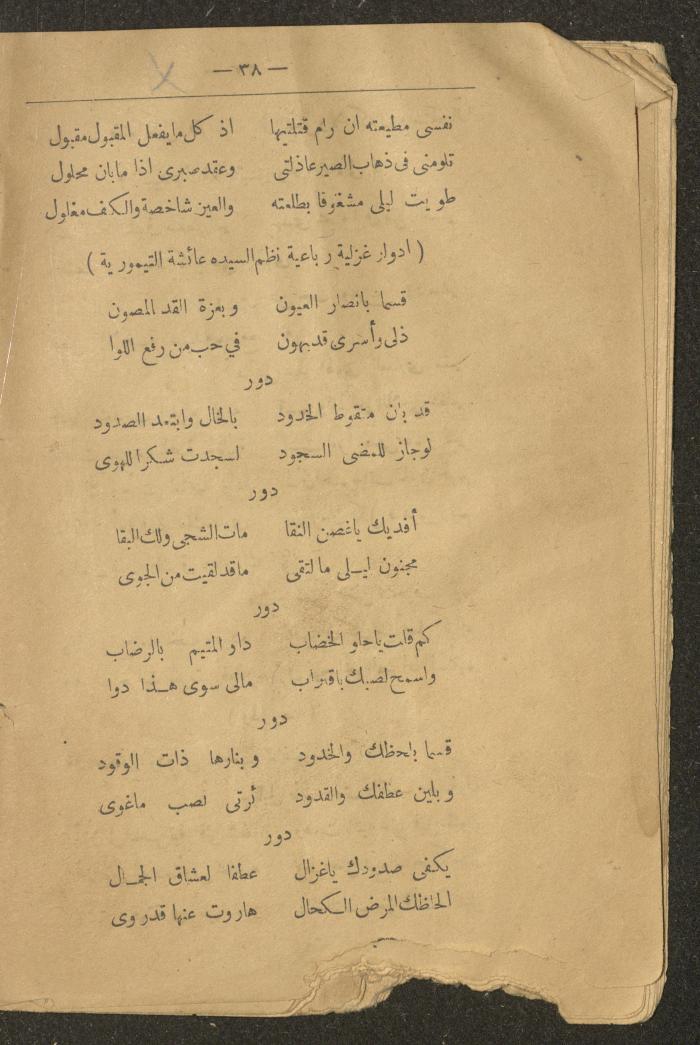 — ٣٨ —
نفسى مطيعته ان رام قتلتيها اذ كل مايفعل المقبول مقبول
تلومنى فى ذهاب الصبر عاذلتى وعقد صبرى اذا مابان محلول
طويت ليلى مشغوفا بطلعته والعين شاخصة والكف مغلول
( ادوار غزلية رباعية نظم السيده عائشة التيمورية )
قسما بانصار العيون وبعزة القد المصون
ذلى وأسرى قد يهون في حب من رفع اللوا
دور
قد بان منقوط الخدود بالخال وابتعد الصدود
لوجاز للمضى السجود لسجدت شكرا للهوى
دور
أفديك ياغصن النقا مات الشجى ولك البقا
مجنون ليلى مالتقى ماقد لقيت من الجوى
دور
كم قلت ياحلو الخضاب داو المتيم بالرضاب
واسمح لصبك باقتراب مالى سوى هذا دوا
دور
قسما بلحظك والخدود وبنارها ذات الوقود
وبلين عطفك والقدود ترثى لصب ماغوى
دور
يكفى صدودك ياغزال عطفا لعشاق الجمال
الحاظك المرض الكحال هاروت عنها قد روى